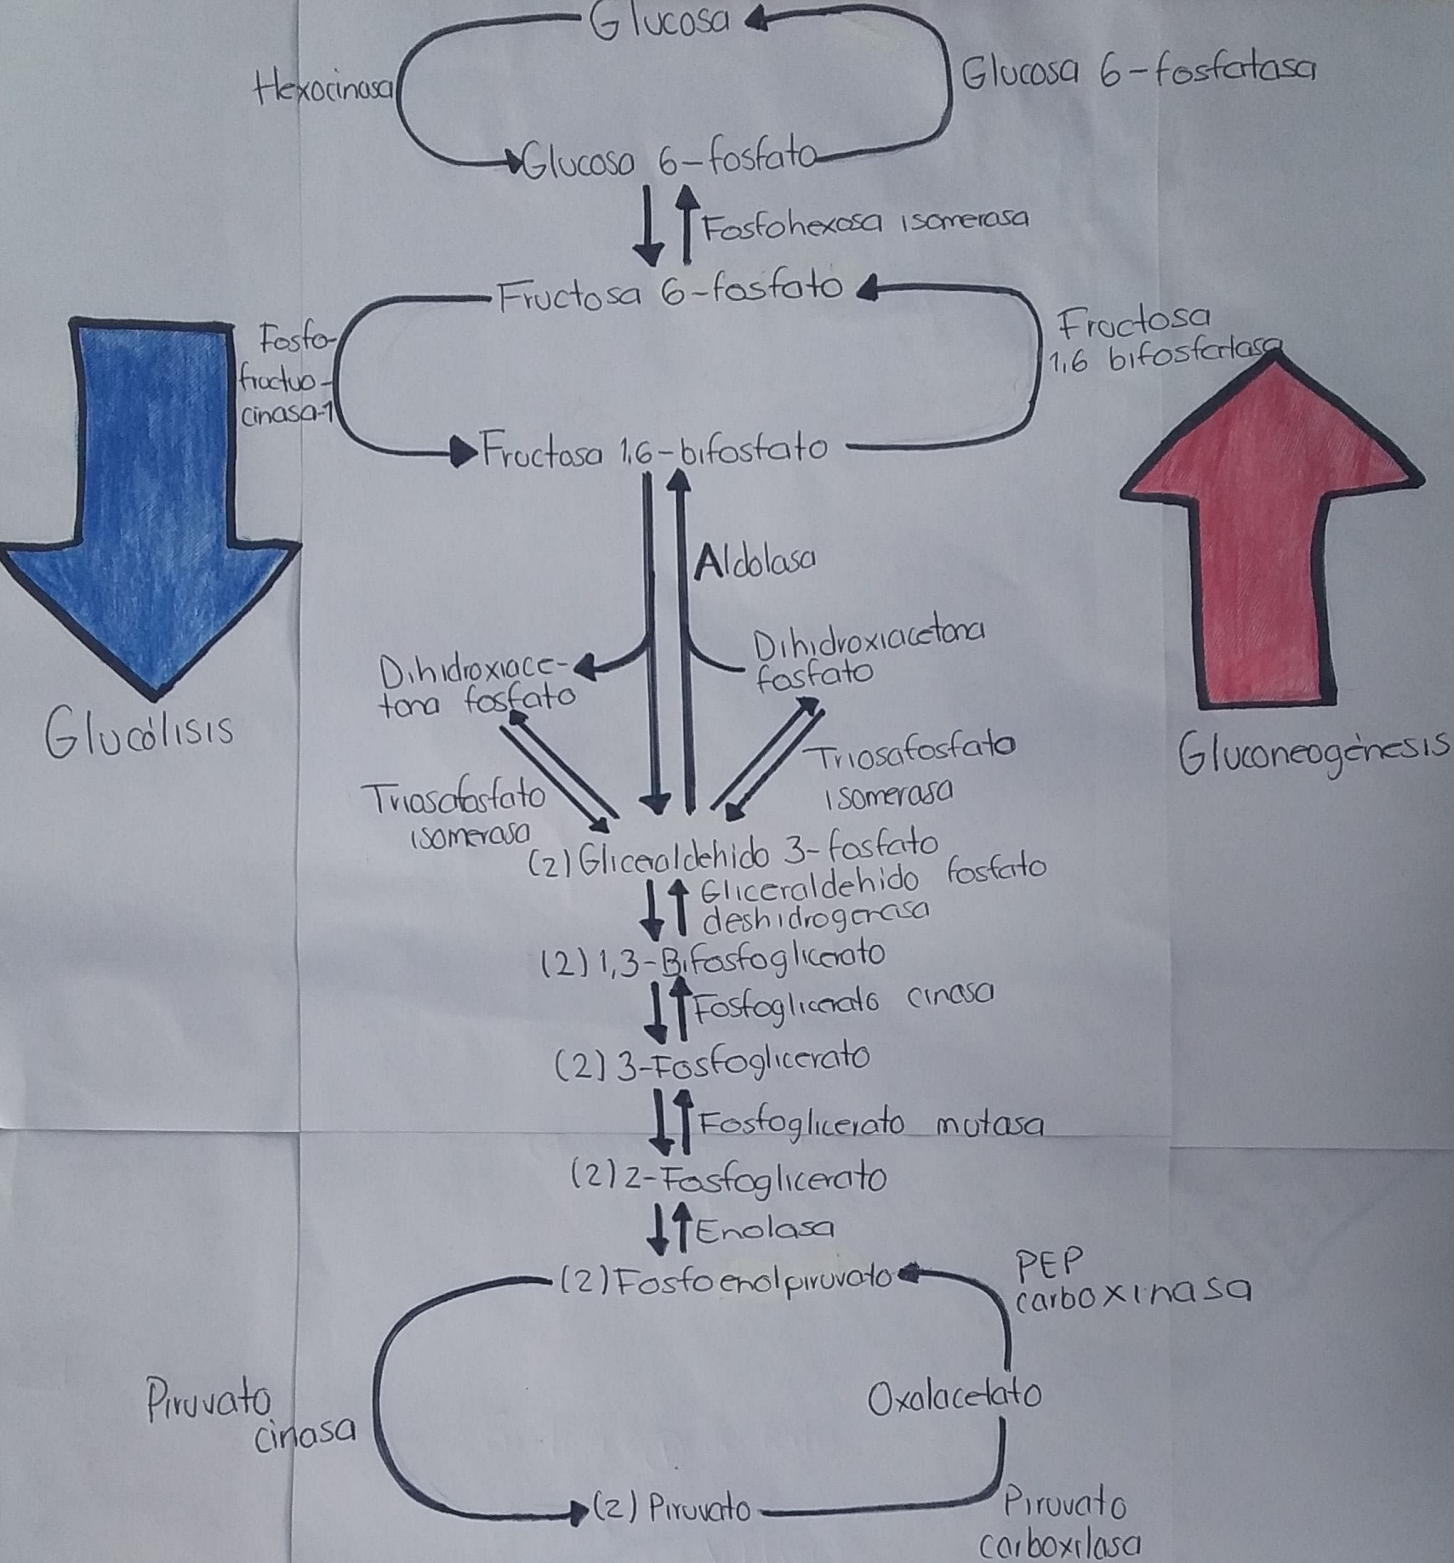 Glucosa
Hexocinasa
Glucosa 6-fosfatasa
Glucosa 6-fosfato
Fosfohexosa isomerasa
Fructosa 6-fosfato
Fosfo-
fructuo-
cinasa-1
Fructosa
1,6 bifosfatasa
Fructosa 1,6-bifosfato
Aldolasa
Dihidroxiace-
tona fosfato
Dihidroxiacetona
fosfato
Glucólisis
Gluconeogénesis
Triosafosfato
isomerasa
Triosafosfato
isomerasa
(2) Gliceraldehido 3-fosfato
Gliceraldehido fosfato
deshidrogenasa
(2) 1,3-Bifosfoglicerato
Fosfoglicerato cinasa
(2) 3-Fosfoglicerato
Fosfoglicerato mutasa
(2) 2-Fosfoglicerato
Enolasa
(2) Fosfoenolpiruvato
PEP
carboxinasa
Piruvato
cinasa
Oxalacetato
(2) Piruvato
Piruvato
carboxilasa